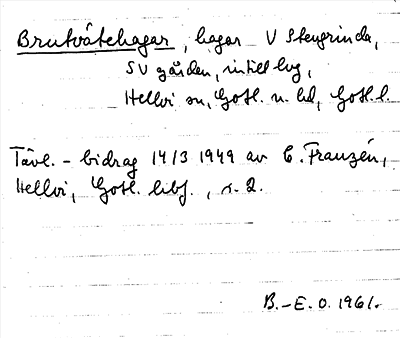 Brutvåtehagar, hagar V Stengrinda,
SV gården, intill lvg,
Hellvi sn, Gotl. n. hd, Gotl. l.
Tävl.-bidrag 14/3 1949 av C. Franzén,
Hellvi, Gotl. , s. 2.
B.-E. O. 1961.